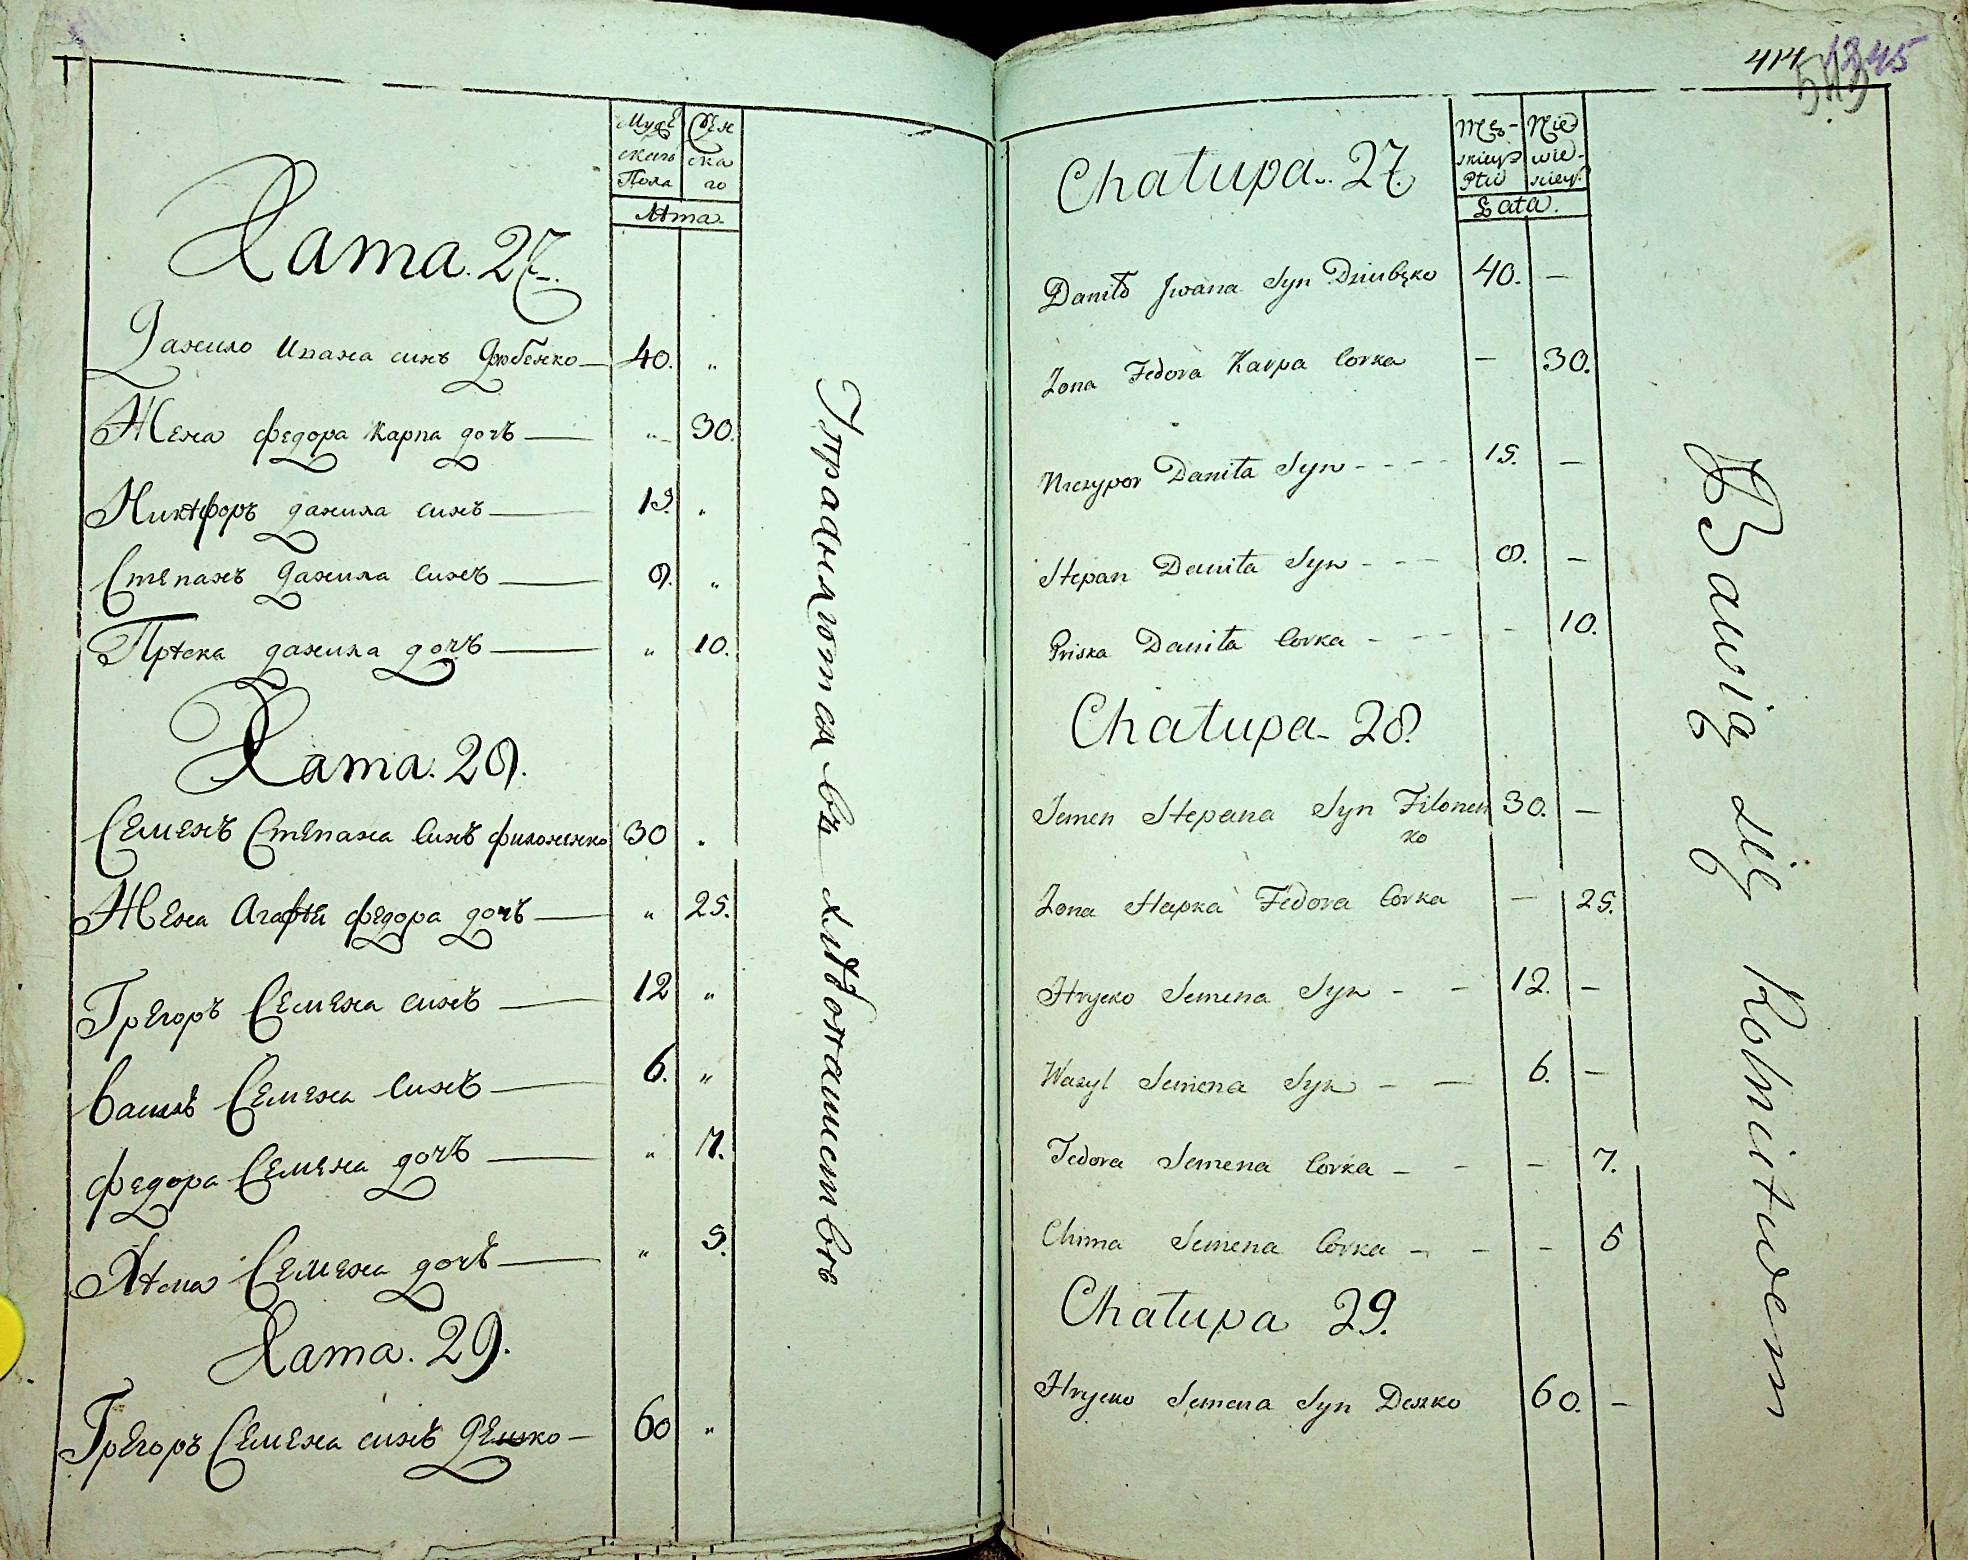 Мужескаго Пола
Женскаго
Лѣта.
Хата. 27.
Данило Ивана синъ Дзюбенко 40. "
Жена федора Карпа дочъ " 30.
Никѣфоръ данила синъ 15. "
Степанъ данила синъ 8. "
Прѣска данила дочъ " 10.
Хата. 28.
Семенъ Степана синъ филоненко 30 "
Жена Агафѣя федора дочъ " 25.
Грегоръ Семена синъ 12 "
Василь Семена синъ 6. "
федора Семена дочъ " 7.
Хѣма Семена дочъ " 5.
Хата. 29.
Грегоръ Семена синъ Дешко 60 "
въ хлѣбопашествѣ
414 1345
513
Męskiey Płci
Niewieściey
Lata.
Chałupa 27.
Daniło Jwana Syn Dziubęko 40. —
Zona Fedora Karpa Corka — 30.
Niczypor Daniła Syn - - - - 15. —
Stepan Daniła Syn - - - 8. —
Priska Daniła Corka - - - - 10.
Chałupa 28.
Semen Stepana Syn Filonen 30. —
ko
Zona Hapka Fedora Corka — 25.
Hryćko Semena Syn - - 12. —
Wasyl Semena Syn - — 6. —
Fedora Semena Corka - - - 7.
Chima Semena Corka - - - 5
Chałupa 29.
Hryćko Semena Syn Deszko 60. —
Bawią się Rolnictwem